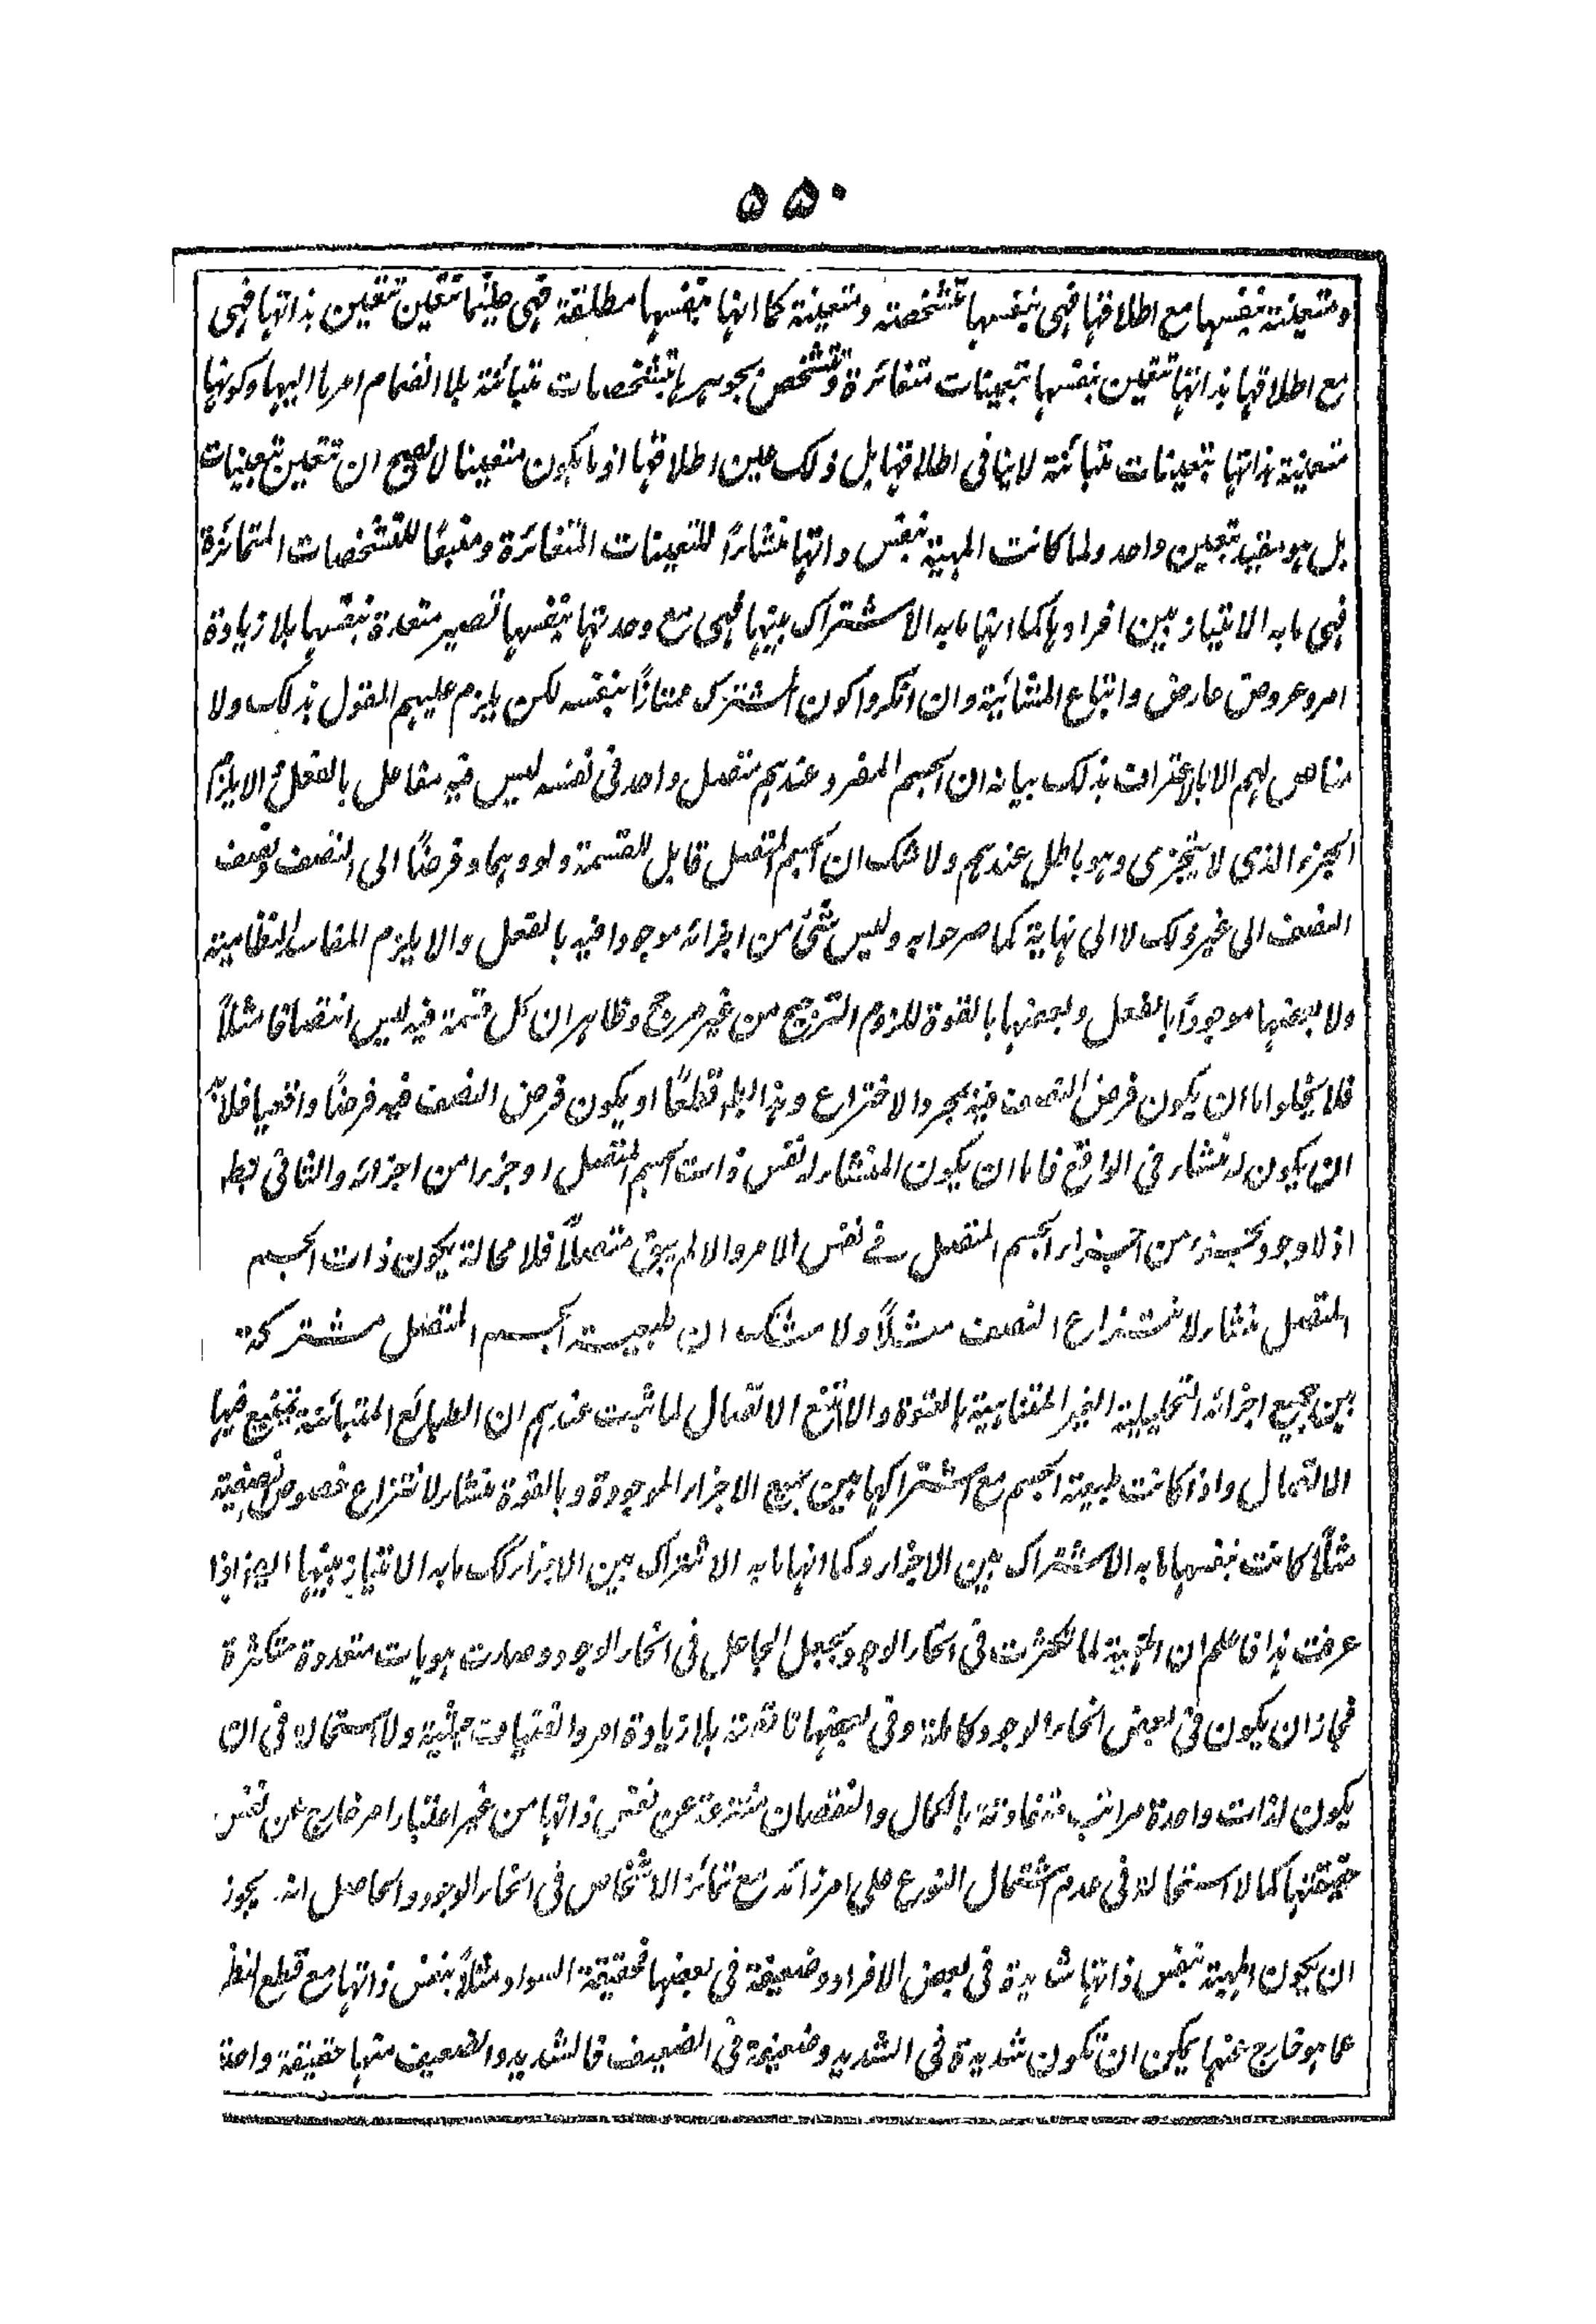 ۵۵۰
ومتعينة بنفسها مع اطلاقها فهى بنفسها متشخصة ومتعينة كما انها بنفسها مطلقة فهى حينما تتعين تتعين بذاتها فهى
مع اطلاقها بذاتها تتعين بنفسها بتعينات متغائرة وتتشخص بجوهرها بتشخصات متبائنة بلا انضمام امر ما اليها وكونها
متعينة بذاتها بتعينات متبائنة لا ينافى اطلاقها بل ذلك عين اطلاقها اذ ما يكون متعينا لا يصح ان تتعين بتعينات
بل هو مقيد بتعين واحد ولما كانت المهية بنفس ذاتها منشاراً للتعينات المتغائرة ومنبعًا للتشخصات المتمائزة
فهى ما به الامتياز بين افرادها كما انها ما به الاشتراك بينها فهى مع وحدتها بنفسها تصير متعددة بنفسها بلا زيادة
امر وعروض عارض واتباع المشائية وان انكروا كون المشترك ممتازاً بنفسه لكن يلزم عليهم القول بذلك ولا
مناص لهم الا بالاعتراف بذلك بيانه ان الجسم المفرد عندهم متصل واحد فى نفسه ليس فيه مفاصل بالفعل والا يلزم
الجزء الذى لا يتجزى وهو باطل عندهم ولا شك ان الجسم المتصل قابل للقسمة ولو وهما وفرضًا الى النصف ونصف
النصف الى غير ذلك لا الى نهاية كما صرحوا به وليس شئ من اجزائه موجودا فيه بالفعل والا يلزم المفاسد النظامية
ولا بعضها موجوداً بالفعل وبعضها بالقوة للزوم الترجيح من غير مرجح وظاهر ان كل قسمة فيه ليس انتصافا مثلاً
فلا يخلوا اما ان يكون فرض النصف فيه بمجرد الاختراع وهذا باطل قطعًا او يكون فرض النصف فيه فرضًا واقعيا فلا بد
ان يكون له منشار فى الواقع فاما ان يكون المنشار له نفس ذات الجسم المتصل او جزرا من اجزائه والثانى بط
اذ لا وجود لجزء من اجزار الجسم المتصل فے نفس الامر والا لم يبق متصلاً فلا محالة يكون ذات الجسم
المتصل منشار لانتزاع النصف مثلاً ولا شك ان طبيعة الجسم المتصل مشتركة
بين جميع اجزائه التحليلية الغير المتناهية بالقوة والا امتنع الاتصال لما ثبت عندهم ان الطبائع المتبائنة يمتنع فيها
الاتصال واذا كانت طبيعة الجسم مع اشتراكها بين جميع الاجزار الموجودة وبالقوة منشار لانتزاع خصوص نصفية
مثلاً كانت بنفسها ما به الاشتراك بين الاجزار وكما انها ما به الاشتراك بين الاجزار كك ما به الامتياز بينها ايضا اذا
عرفت هذا فاعلم ان المهية لما تكثرت فى انحار الوجود بجعل الجاعل فى انحار الوجود وصارت هويات متعددة متكثرة
فجاز ان يكون فى بعض انحار الوجود كاملة وفى بعضها ناقصة بلا زيادة امر وانضياف حيثية ولا استحالة فى ان
يكون لذات واحدة مراتب متفاوتة بالكمال والنقصان منتزعة عن نفس ذاتها من غير اعتبار امر خارج عن نفس
حقيقتها كما لا استحالة فى عدم اشتمال النوع على امر زائد مع تمائز الاشخاص فى انحار الوجود والحاصل انه يجوز
ان يكون المهية بنفس ذاتها شديدة فى بعض الافراد وضعيفة فى بعضها فحقيقة السواد مثلاً بنفس ذاتها مع قطع النظر
عما هو خارج عنها يمكن ان تكون شديدة فى الشديد وضعيفة فى الضعيف فالشديد والضعيف منها حقيقة واحدة